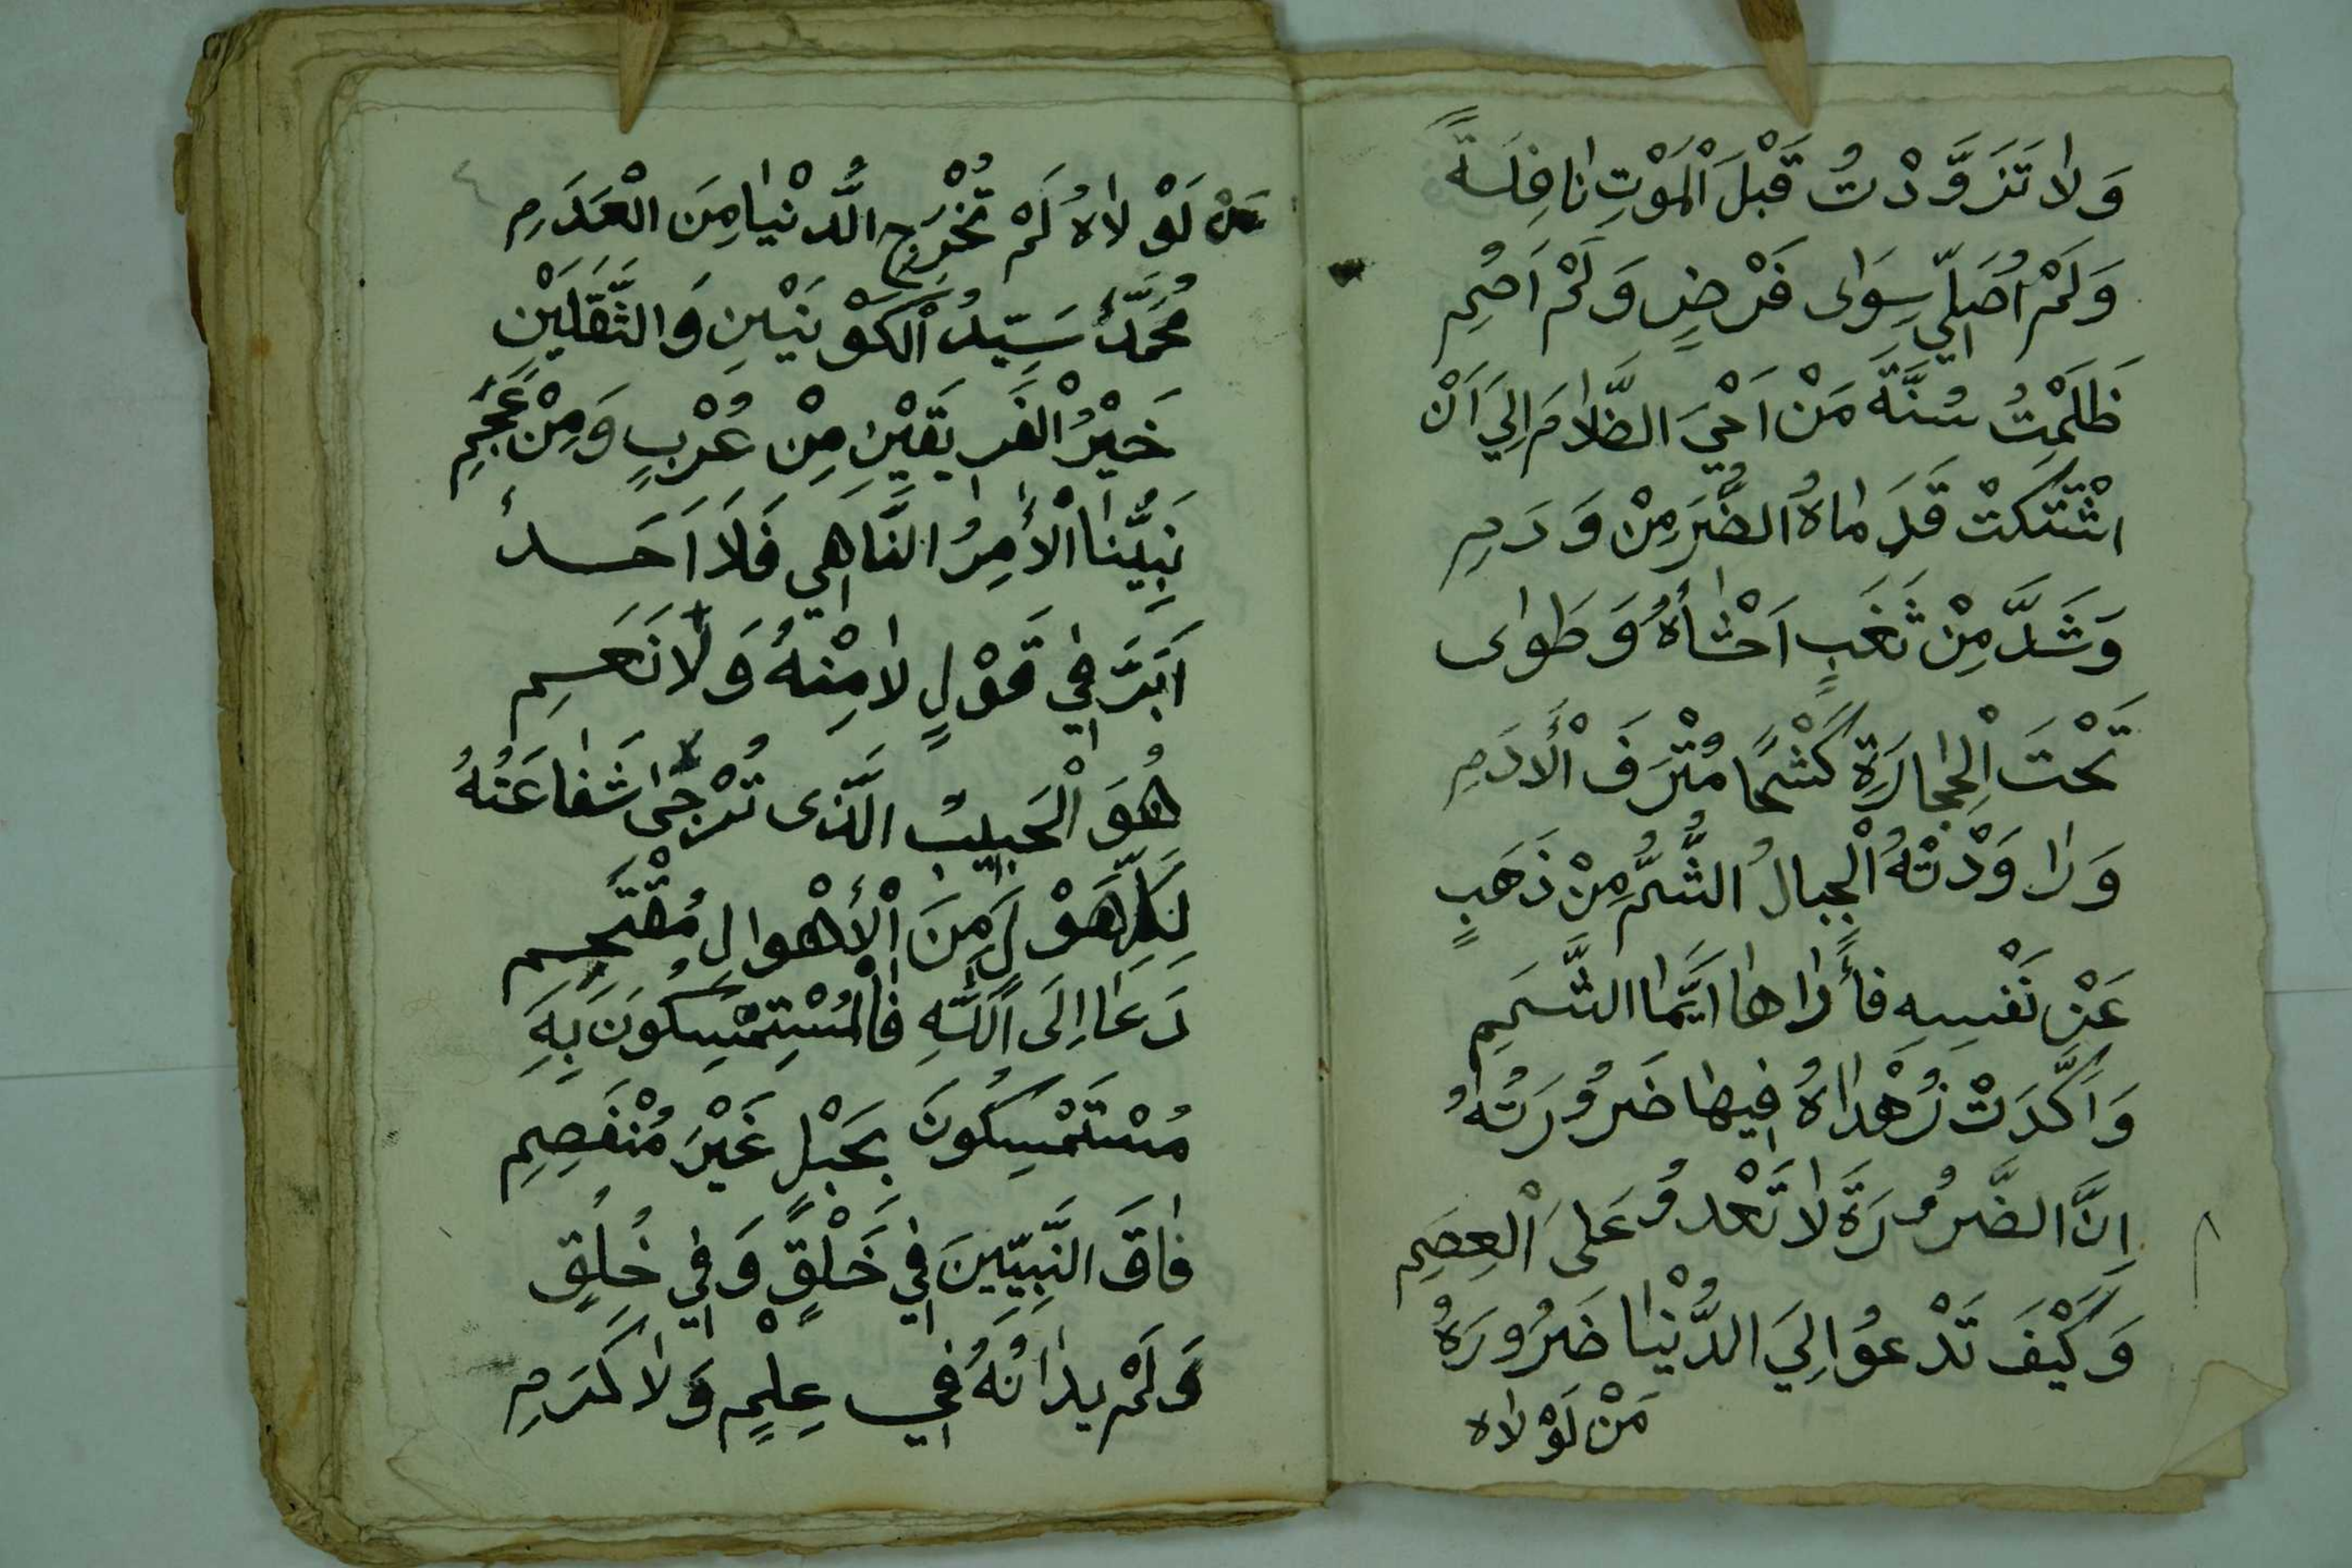 وَلَا تَزَوَّدْتُ قَبْلَ الْمَوْتِ نَافِلَةً
وَلَمْ اُصَلِّي سِوٰى فَرْضٍ وَلَمْ اَصُمِ
ظَلَمْتُ سُنَّةَ مَنْ اَحْيَ الظَّلَامَ اِلَيَ اَنْ
اشْتَكَتْ قَدَمَاهُ الضُّرَ مِنْ وَرَمِ
وَشَدَّ مِنْ ثَغَبٍ اَحْشَأهُ وَطَوٰى
تَحْتَ الْحِجَارَةِ كَشْحًا مُتْرَفَ الْأَدَمِ
وَرَاوَدْتْهُ الْجِبَالُ الشُّمُّ مِنْ ذَهَبٍ
عَنْ نَفْسِهِ فَأَرَاهَا اَيَّمَا الشَّمَمِ
وَاَكَّدَتْ زُهْدَاهُ فِيهَا ضَرُورَتُهُ
اِنَّ الضَّرُورَةَ لَا تَعْدُو عَلَى الْعِصَمِ
وَكَيْفَ تَدْعُوا اِلَيَ الدُّنْيَا ضَرُورَةُ
مَنْ لَوْلَاه
مَنْ لَوْلَاهُ لَمْ تُخْرَجِ الدُّنْيَا مِنَ الْعَدَمِ
مُحَمَّدٌ سَيِّدُ الْكَوْنَيْنِ وَالثَّقَلَيْنِ
خَيْرُ الْفَرِيقَيْنِ مِنْ عُرْبٍ وَمِنْ عَجَمِ
نَبِيُّنَا الْأٰمِرُ النَّاهِي فَلَا اَحَدٌ
اَبَرَّ فِي قَوْلٍ لَا مِنْهُ وَلَا نَعَمِ
هُوَ الْحَبِيبُ الَّذِى تُرْجٰى شَفَاعَتُهُ
لِكُلِّ هَوْلٍ مِنَ الْأَهْوَالِ مُقْتَحَمِ
دَعَا اِلَى اللَّهِ فَالْمُسْتَمْسِكُونَ بِهِ
مُسْتَمْسِكُونَ بِحَبْلٍ غَيْرَ مُنْفَصِمِ
فَاقَ النَّبِيّينَ فِي خَلْقٍ وَفِي خُلُقٍ
وَلَمْ يدَانُهُ فِي عِلْمٍ وَلَا كَرَمِ